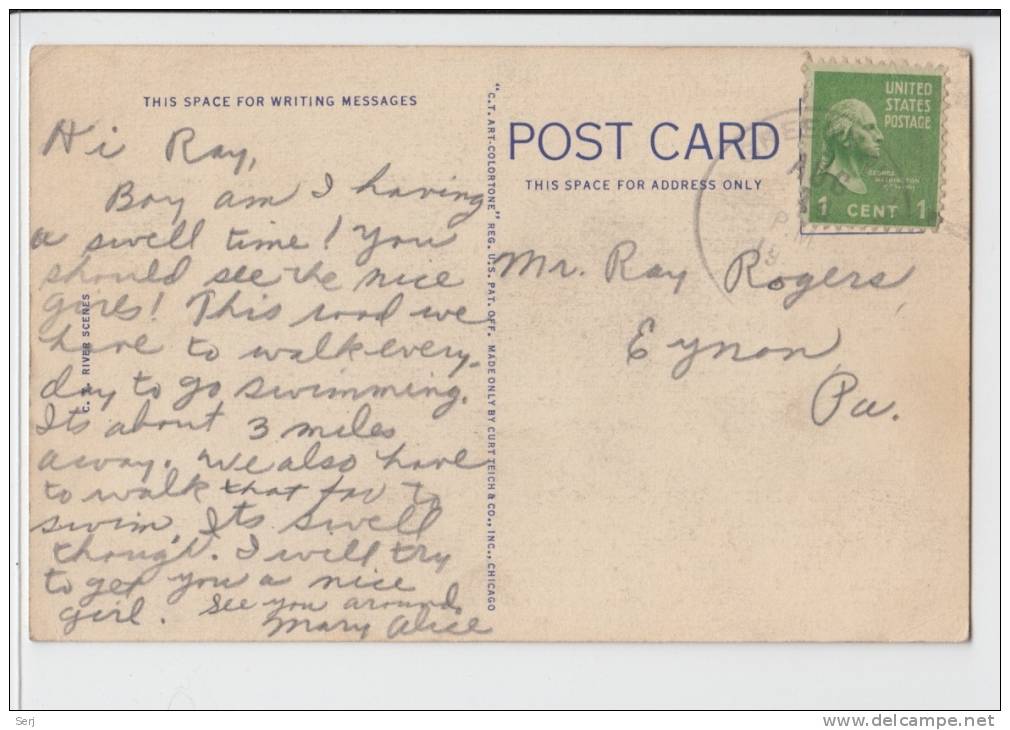 THIS SPACE FOR WRITING MESSAGES
Hi Ray,
Boy am I having
a swell time! You
should see the nice
girls! This road we
have to walk every
day to go swimming.
Its about 3 miles
away. We also have
to walk that far to
swim. Its swell
though. I will try
to get you a nice
girl. See you around.
Mary Alice
RIVER SCENES
"C.T. ART-COLORTONE" REG. U.S. PAT. OFF. MADE ONLY BY CURT TEICH & CO., INC., CHICAGO
POST CARD
THIS SPACE FOR ADDRESS ONLY
UNITED
STATES
POSTAGE
GEORGE
WASHINGTON
1 CENT 1
AUG
PM
Mr. Ray Rogers
Eynon
Pa.
Serj
delcampe.net